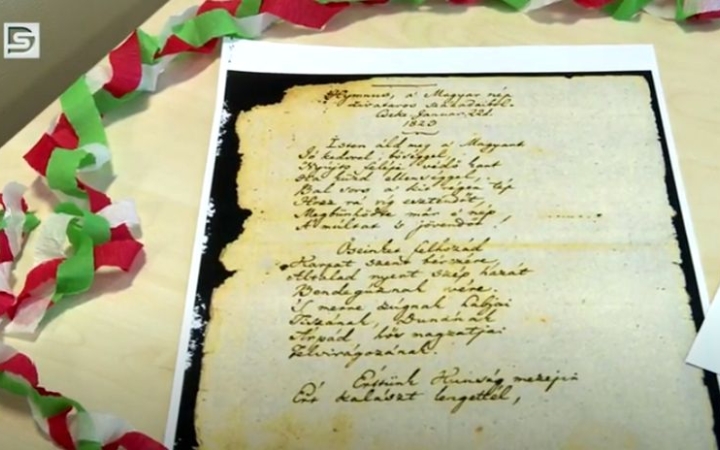 Hymnus, a' Magyar nép
zivataros századaiból.
Cseke. Januar. 22d.
1823
Isten áld meg a' Magyart
Jó kedvvel, bőséggel,
Nyújts feléje védő kart
Ha küzd ellenséggel;
Bal sors a' kit régen tép
Hozz rá víg esztendőt,
Megbűnhödte már e' nép
A' múltat 's jövendőt!
Őseinket felhozád
Karpat szent bérczére,
Általad nyert szép hazát
Bendegúznak vére.
'S merre zúgnak habjai
Tiszának, Dunának
Árpád hős magzatjai
Felvirágozának.
Értünk Kunság mezején
Ért kalászt lengettél,